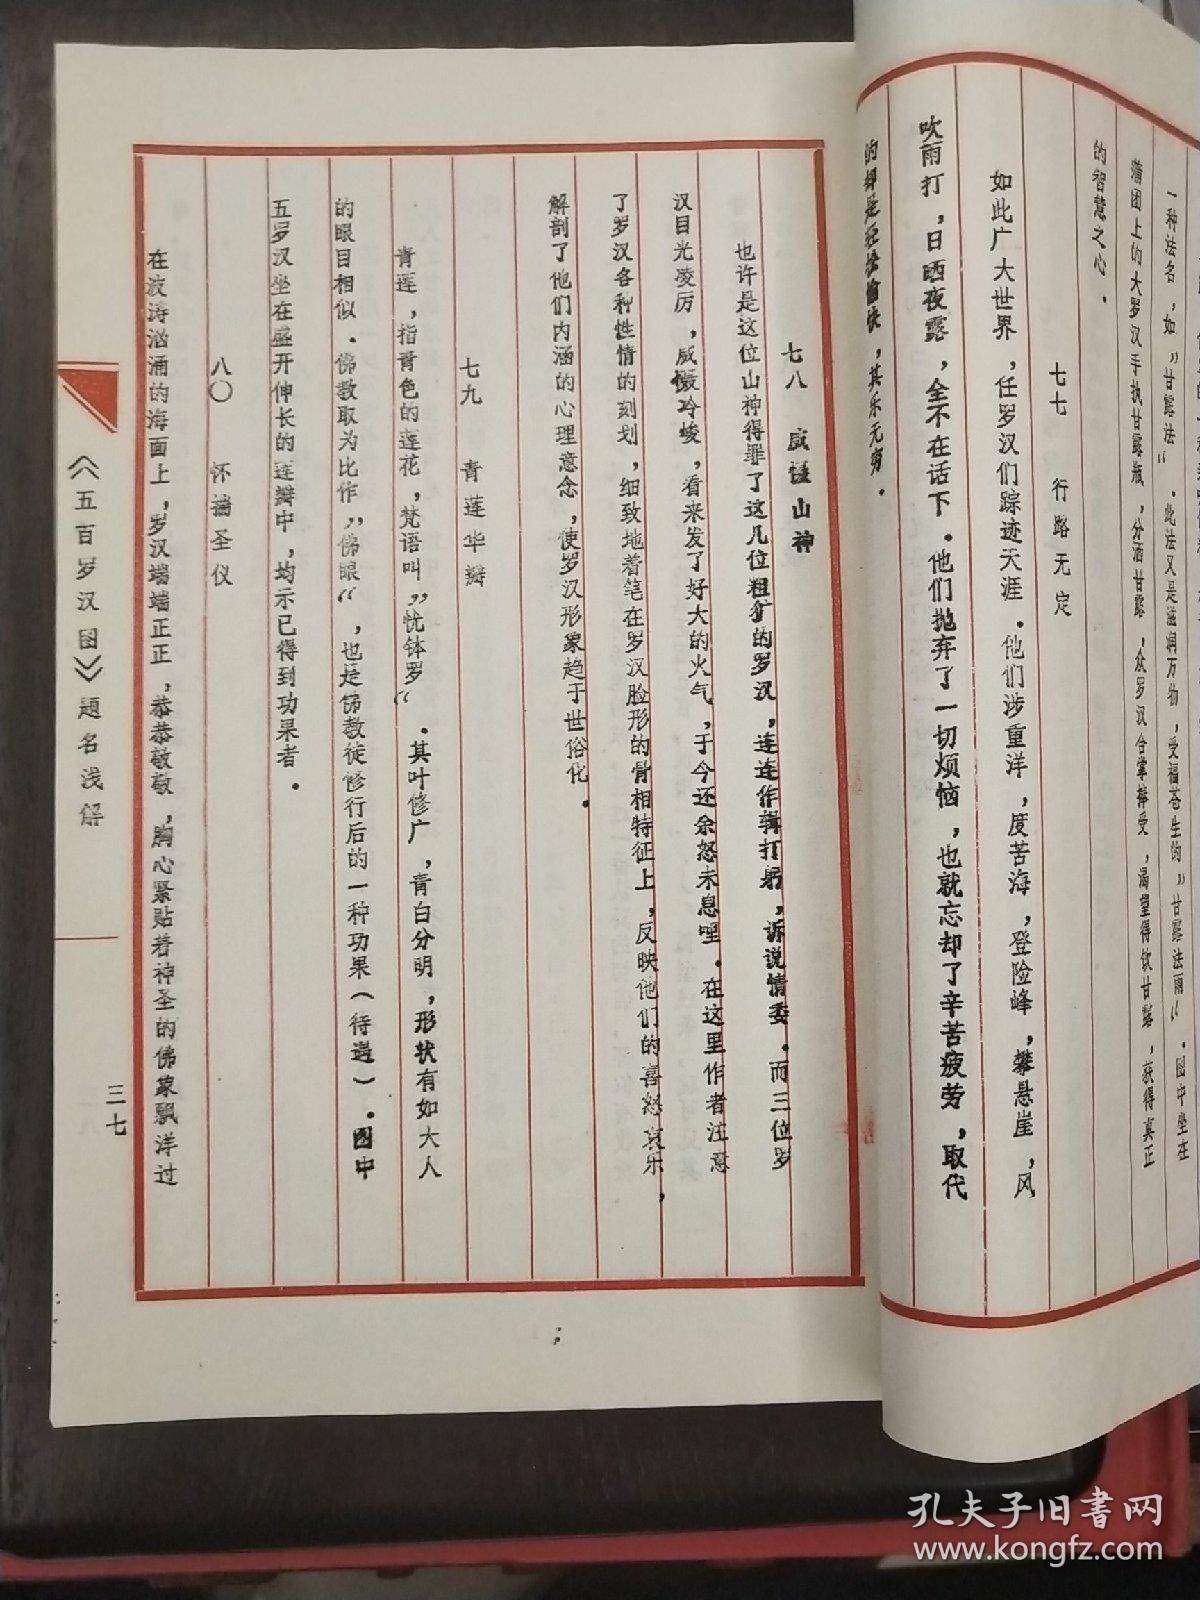 一种法名，如“甘露法”．此法又是滋润万物，受福苍生的“甘露法雨”．图中坐在
蒲团上的大罗汉手执甘露瓶，分洒甘露，众罗汉合掌捧受，渴望得饮甘露，获得真正
的智慧之心．
七七 行路无定
如此广大世界，任罗汉们踪迹天涯．他们涉重洋，度苦海，登险峰，攀悬崖，风
吹雨打，日晒夜露，全不在话下．他们抛弃了一切烦恼，也就忘却了辛苦疲劳，取代
的却是轻松愉快，其乐无穷．
七八 威慑山神
也许是这位山神得罪了这几位粗犷的罗汉，连连作辑打躬，诉说情委．而三位罗
汉目光凌厉，威慑冷峻，看来发了好大的火气，于今还余怒未息哩．在这里作者注意
了罗汉各种性情的刻划，细致地着笔在罗汉脸形的骨相特征上，反映他们的喜怒哀乐，
解剖了他们内涵的心理意念，使罗汉形象趋于世俗化．
七九 青莲华瓣
青莲，指青色的莲花，梵语叫“忧钵罗”．其叶修广，青白分明，形状有如大人
的眼目相似．佛教取为比作“佛眼”，也是佛教徒修行后的一种功果（待遇）．图中
五罗汉坐在盛开伸长的莲瓣中，均示已得到功果者．
八〇 怀揣圣仪
在波涛汹涌的海面上，罗汉端端正正，恭恭敬敬，胸心紧贴着神圣的佛象飘洋过
《五百罗汉图》题名浅解
三七
孔夫子旧书网
www.kongfz.com